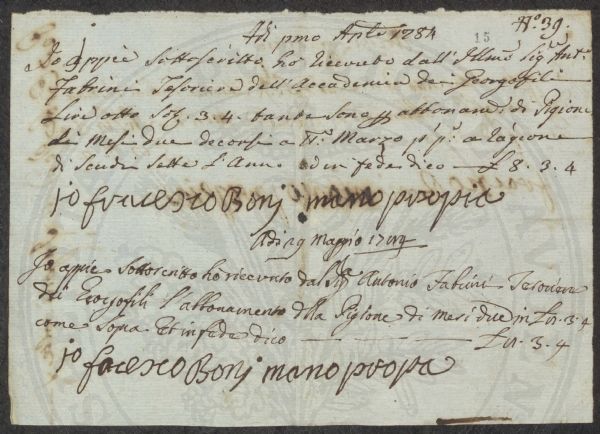 N° 39.
Adi pmo Aple 1784
15
Io appiè Sottoscritto ho ricevuto dall'Illmo Sigre Antº
Fabrini Tesoriere dell'Accademia dei Georgofili
Lire otto Sol. 3.4. tante sono p abbonamto di Pigione
di Mesi due decorsi a tt° Marzo pp° a ragione
di Scudi Sette l'Anno ed in fede dico £ 8.3.4
io fracesco Bonj mano propia
Adi 29 Maggio 1784
Io appiè Sottoscritto ho ricevuto dal Sigr Antonio Fabrini Tesoriere
dei Georgofili l'abbonamento della Pigione di mesi due in £ 8.3.4
come Sopra Et in fede dico £ 8.3.4
io facesco Bonj mano propa